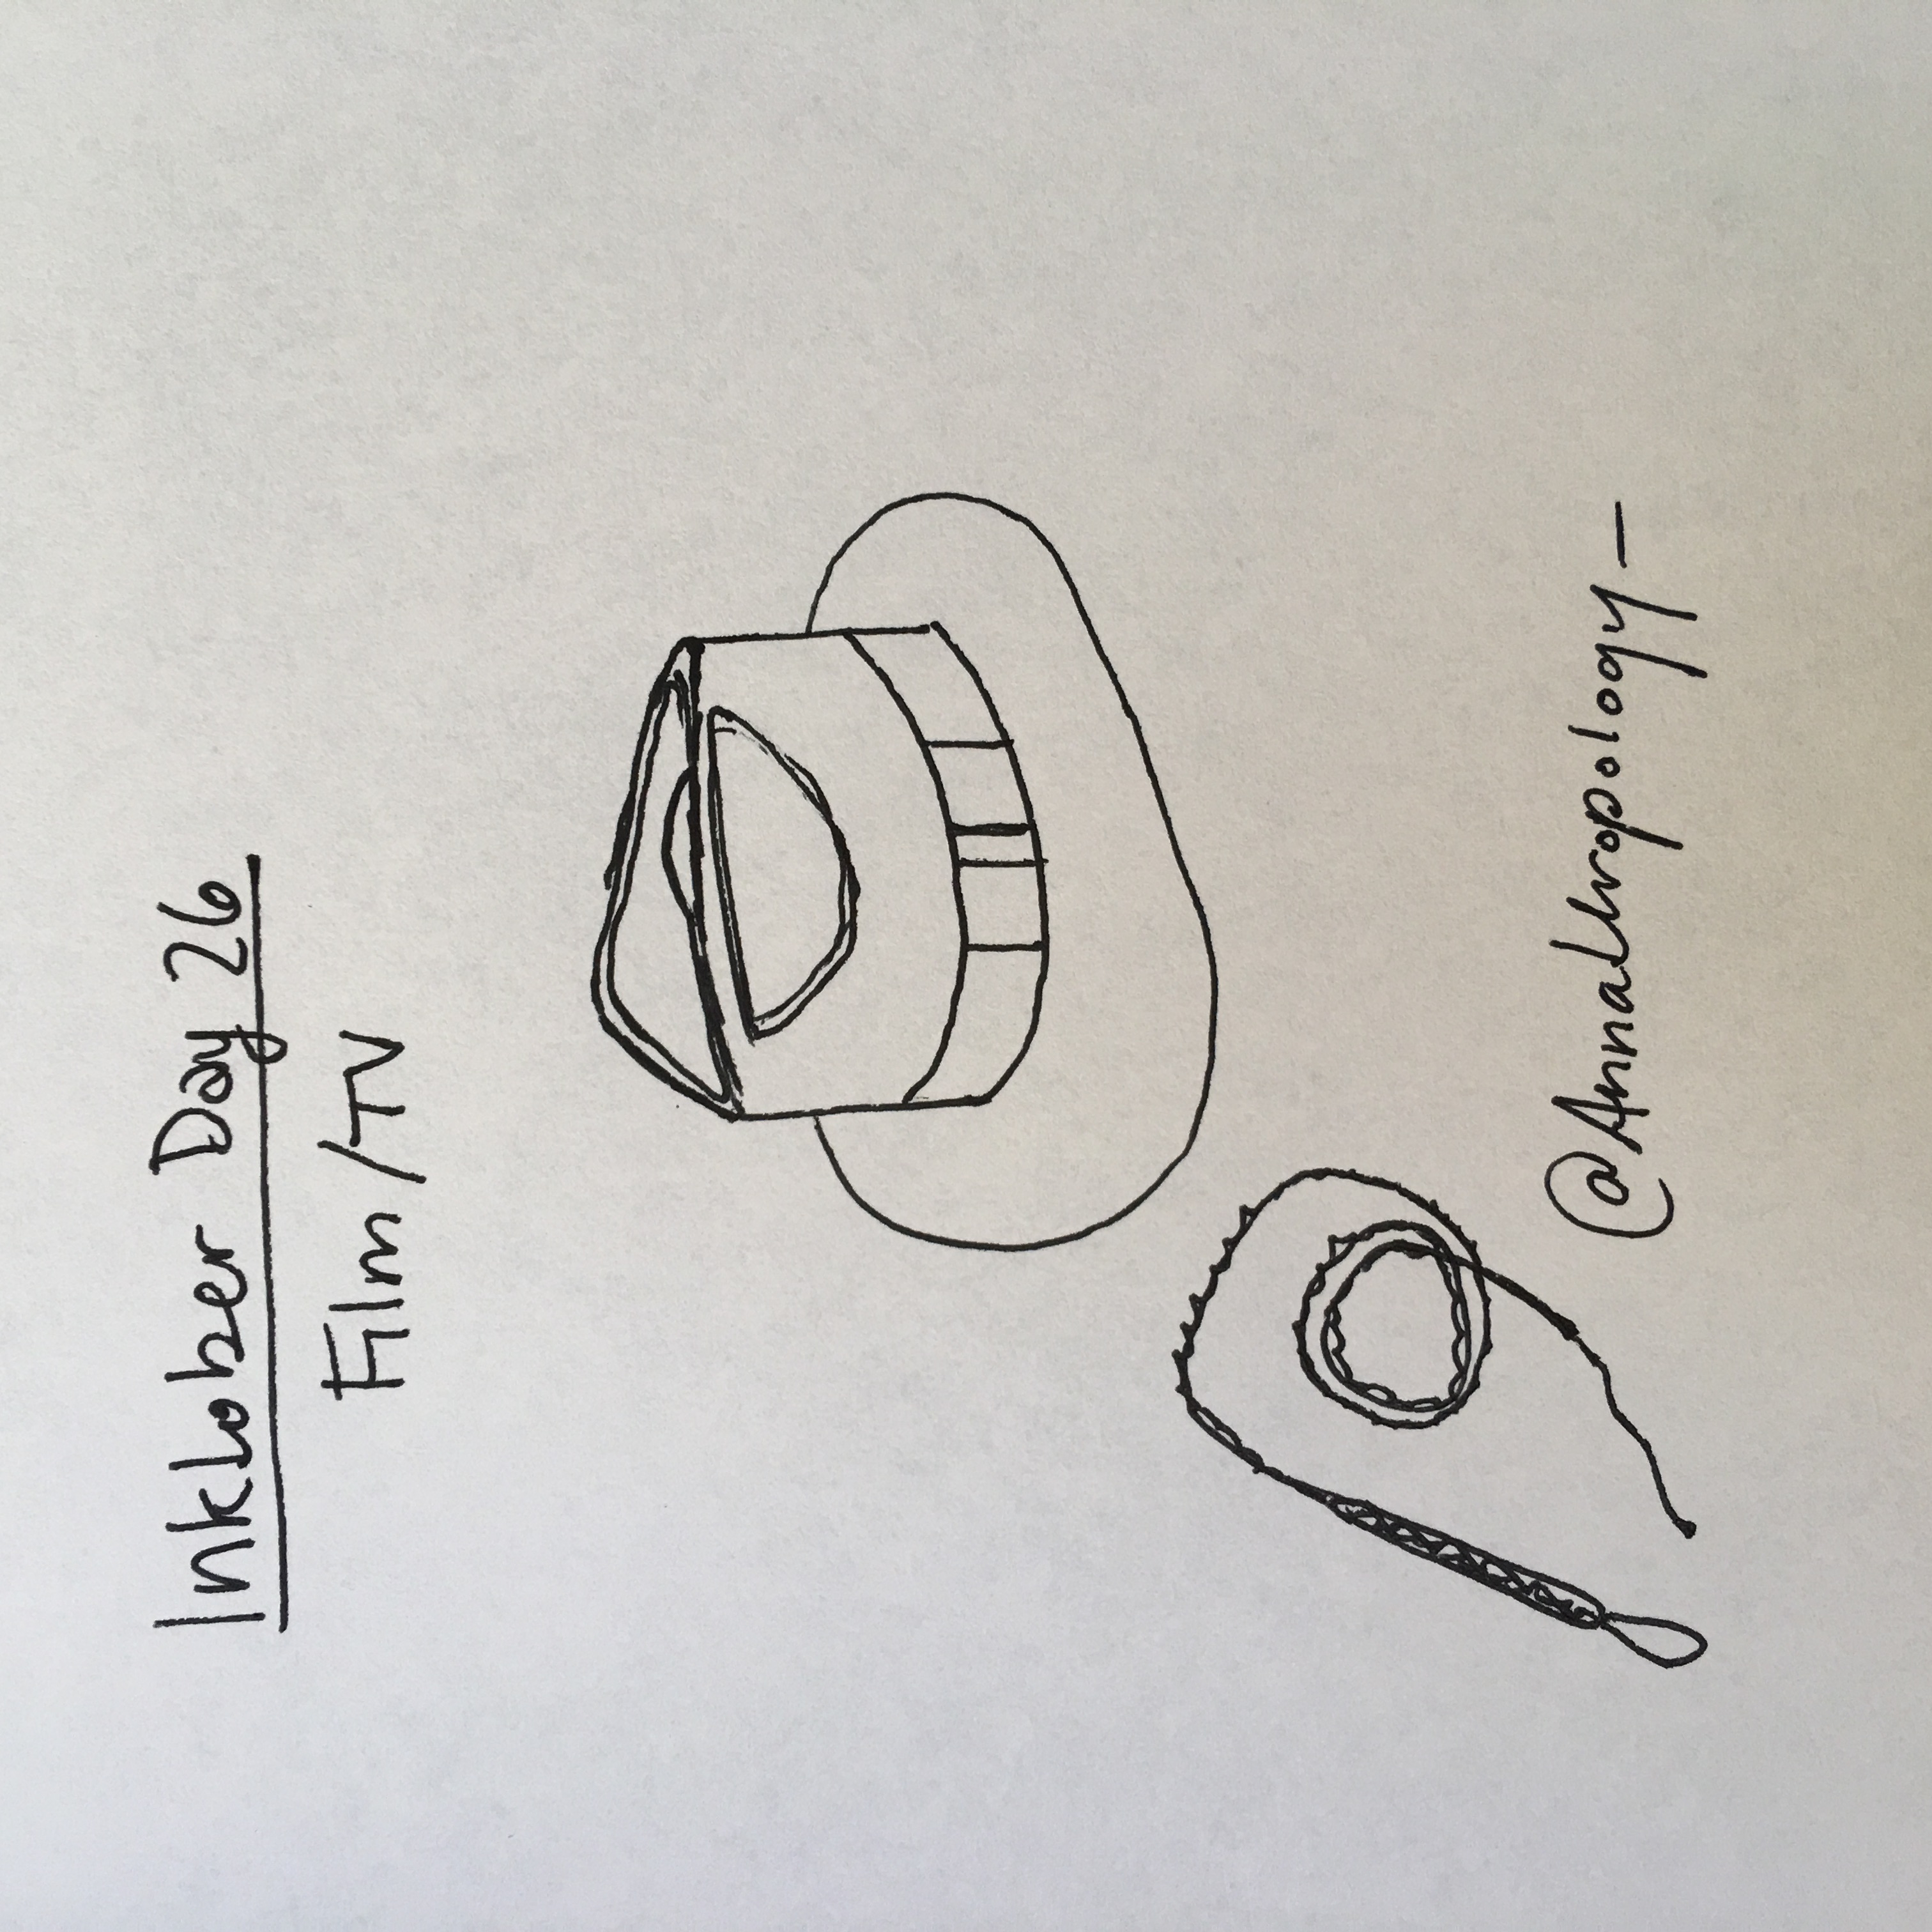 Inktober Day 26
Film/TV
@Annathropology_